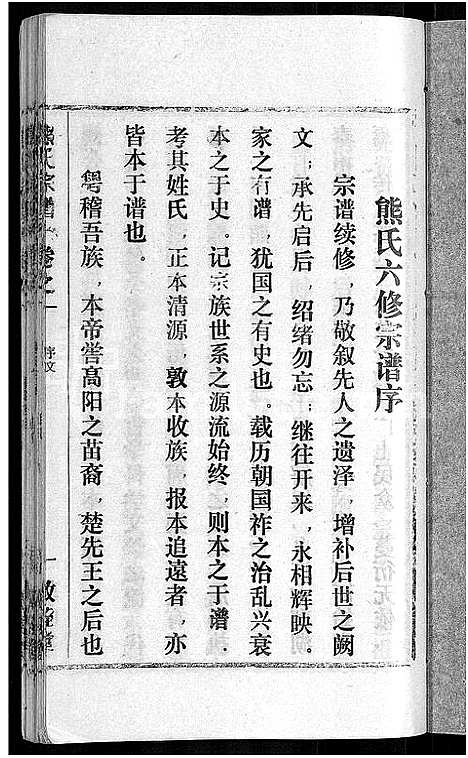 熊氏六修宗谱序
宗谱续修，乃敬叙先人之遗泽，增补后世之阙
文；承先启后，绍绪勿忘；继往开来，永相辉映。
家之有谱，犹国之有史也。载历朝国祚之治乱兴衰
本之于史。记宗族世系之源流始终，则本之于谱．
考其姓氏，正本清源，敦本收族，报本追远者，亦
皆本于谱也。
粤稽吾族，本帝喾高阳之苗裔，楚先王之后也
熊氏宗谱 卷之一 序文 一 敦睦堂